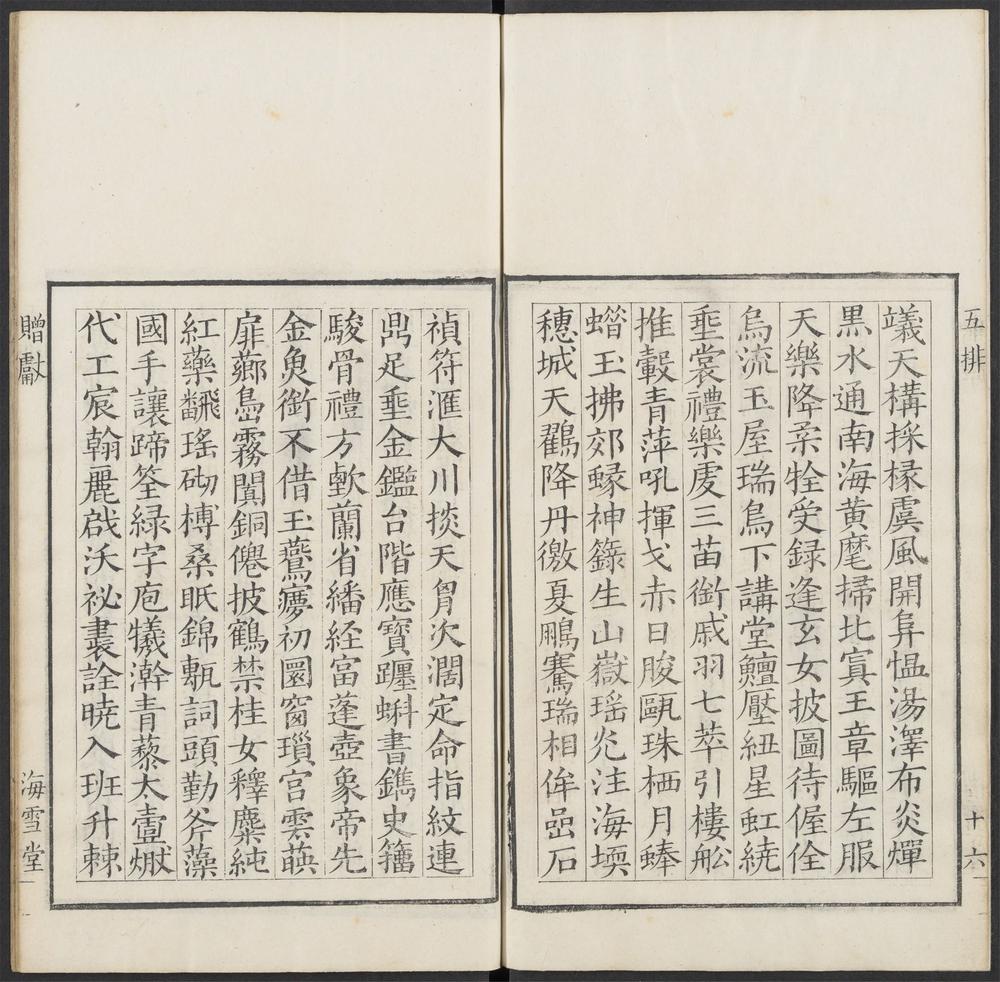 五排　十六
嶬天構採椽虞風開阜愠湯澤布炎燀
黒水通南海黄麾掃北寘王章驅左服
天樂降柔牷受録逢玄女披圖待偓佺
烏流玉屋瑞鳥下講堂鱣壓紐星虹繞
垂裳禮樂䖍三苗銜戚羽七萃引樓舩
推轂青萍吼揮戈赤日朘甌珠栖月蜯
玉拂郊蝝神籙生山嶽瑶灮注海堧
穗城天鸛降丹徼夏鵩騫瑞相侔嵒石
禎符滙大川掞天胷次濶定命指紋連
鼎足垂金鑑台階應寶躔蝌書鐫史籒
駿骨禮方歅蘭省繙経富蓬壺象帝先
金魚銜不借玉鷰㝱初圜窗瑣宮雲䓹
扉薌霧闐銅僊披鶴禁桂女釋麋純
紅藥飜瑤砌榑桑眂錦甎詞頭勤斧藻
國手讓蹄筌緑字庖犧澣青藜太壹
代工宸翰麗啟沃祕詮曉入班升棘
贈獻　海雪堂